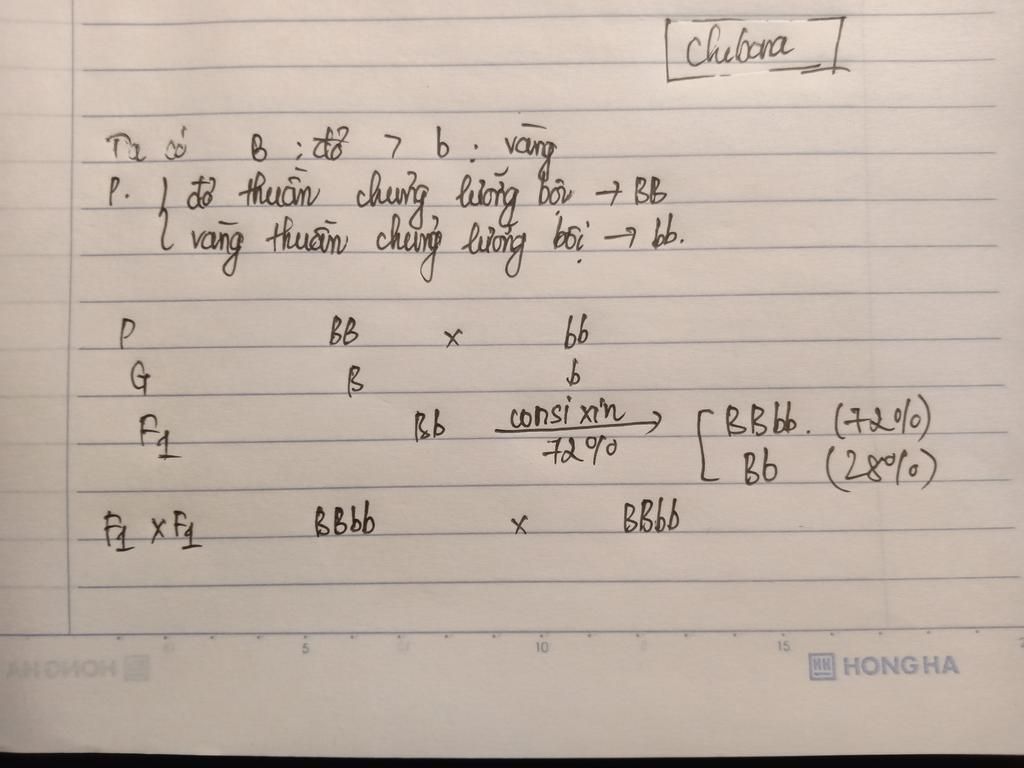 Chebona
Ta có B : đỏ > b : vàng
P. { đỏ thuần chủng lưỡng bội → BB
vàng thuần chủng lưỡng bội → bb.
P BB x bb
G B b
F1 Bb consi xin 72% → BBbb. (72%)
Bb (28%)
F1 x F1 BBbb x BBbb
5 10 15
HONG HA